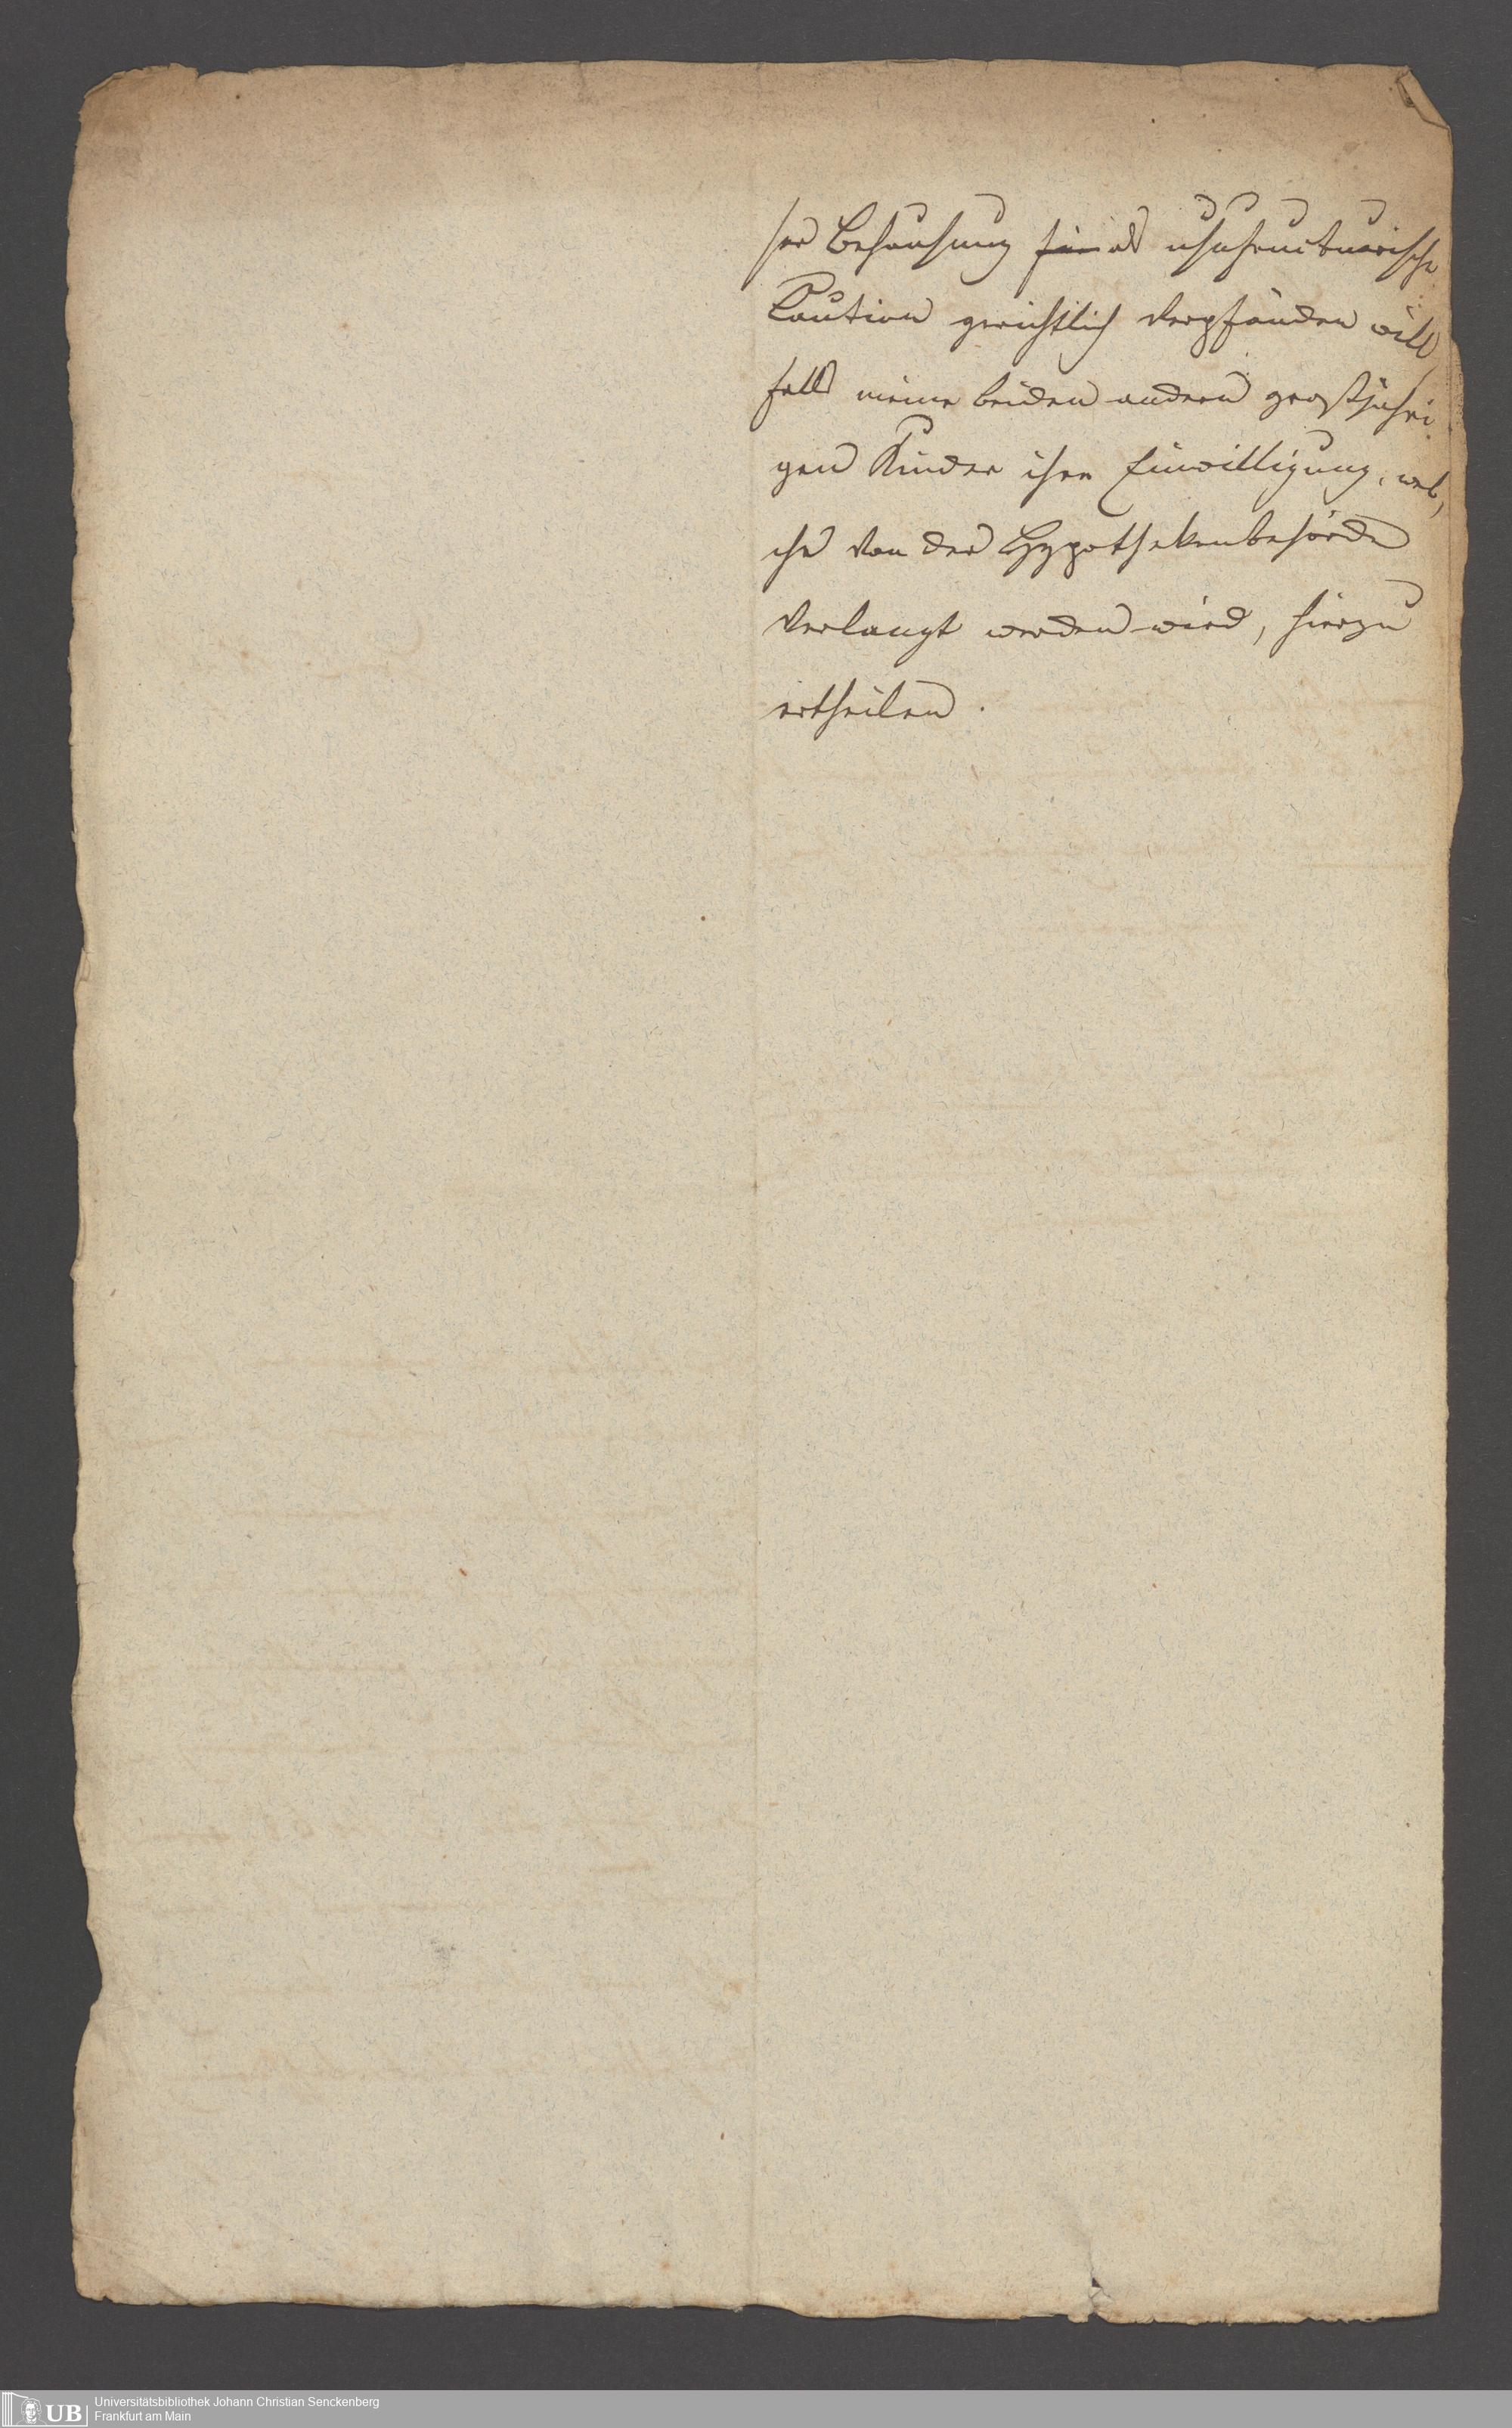 ser Behausung für als usufructuarische
Caution gerichtlich verpfänden will,
falls meine beiden andern großjähri
gen Kinder ihre Einwilligung, wel,
che von der Hypothekenbehörde
verlangt werden wird, hierzu
ertheilen.
UB
Universitätsbibliothek Johann Christian Senckenberg
Frankfurt am Main